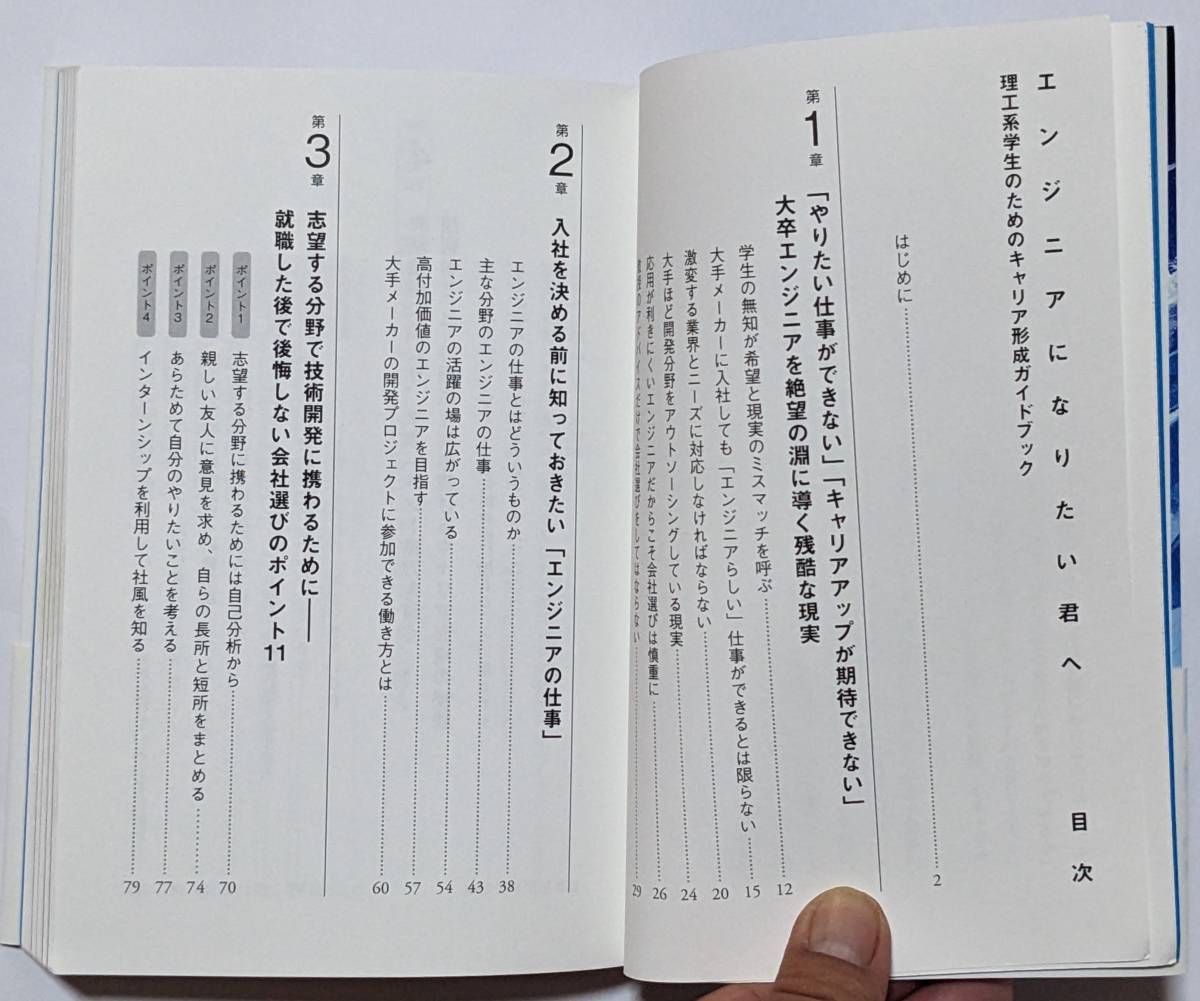 エンジニアになりたい君へ 目次
理工系学生のためのキャリア形成ガイドブック
はじめに 2
第1章 「やりたい仕事ができない」「キャリアアップが期待できない」
大卒エンジニアを絶望の淵に導く残酷な現実
学生の無知が希望と現実のミスマッチを呼ぶ 12
大手メーカーに入社しても「エンジニアらしい」仕事ができるとは限らない 15
激変する業界とニーズに対応しなければならない 20
大手ほど開発分野をアウトソーシングしている現実 24
応用が利きにくいエンジニアだからこそ会社選びは慎重に 26
のアドバイスだけで会社選びをしてはならない 29
第2章 入社を決める前に知っておきたい「エンジニアの仕事」
エンジニアの仕事とはどういうものか 38
主な分野のエンジニアの仕事 43
エンジニアの活躍の場は広がっている 54
高付加価値のエンジニアを目指す 57
大手メーカーの開発プロジェクトに参加できる働き方とは 60
第3章 志望する分野で技術開発に携わるために――
就職した後で後悔しない会社選びのポイント11
ポイント1 志望する分野に携わるためには自己分析から 70
ポイント2 親しい友人に意見を求め、自らの長所と短所をまとめる 74
ポイント3 あらためて自分のやりたいことを考える 77
ポイント4 インターンシップを利用して社風を知る 79